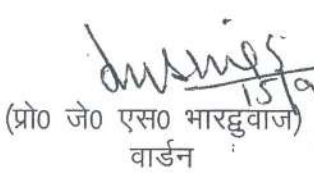 15/9
(प्रो0 जे0 एस0 भारद्वाज)
वार्डन